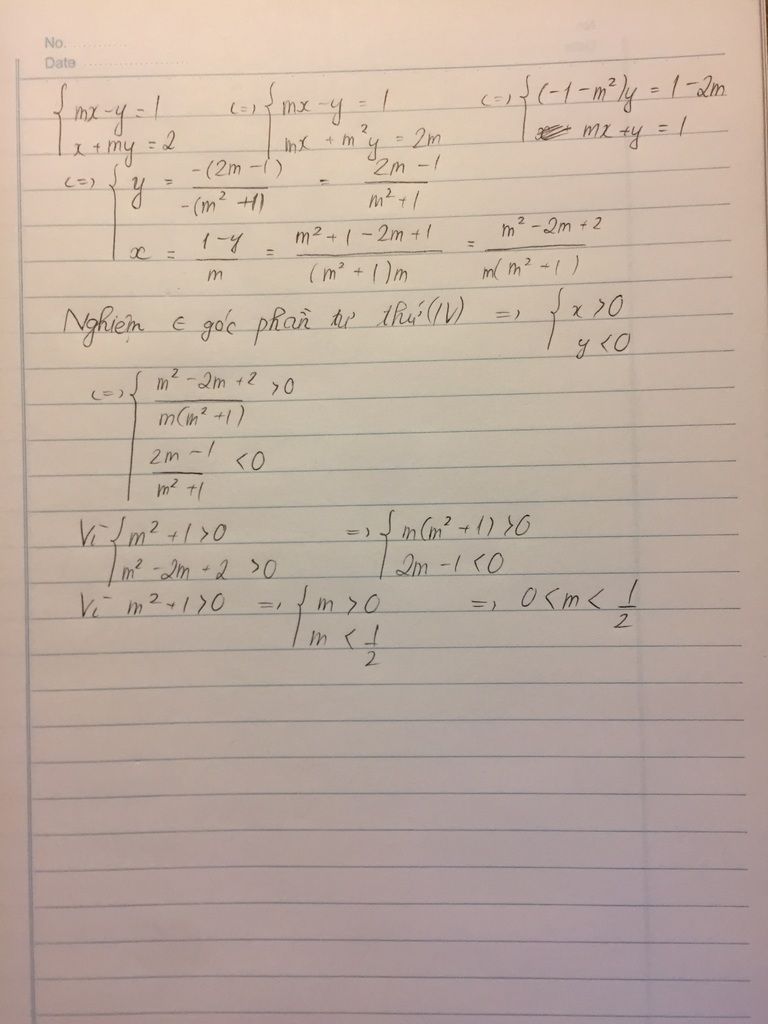 No.
Date
{ mx - y = 1 <=> { mx - y = 1 <=> { (-1 - m²)y = 1 - 2m
x + my = 2 mx + m²y = 2m mx + y = 1
<=> { y = -(2m - 1) / -(m² + 1) = 2m - 1 / m² + 1
x = 1 - y / m = m² + 1 - 2m + 1 / (m² + 1)m = m² - 2m + 2 / m(m² + 1)
Nghiệm ∈ góc phần tư thứ (IV) => { x > 0
y < 0
<=> { m² - 2m + 2 / m(m² + 1) > 0
2m - 1 / m² + 1 < 0
Vì { m² + 1 > 0 => { m(m² + 1) > 0
m² - 2m + 2 > 0 2m - 1 < 0
Vì m² + 1 > 0 => { m > 0 => 0 < m < 1/2
m < 1/2